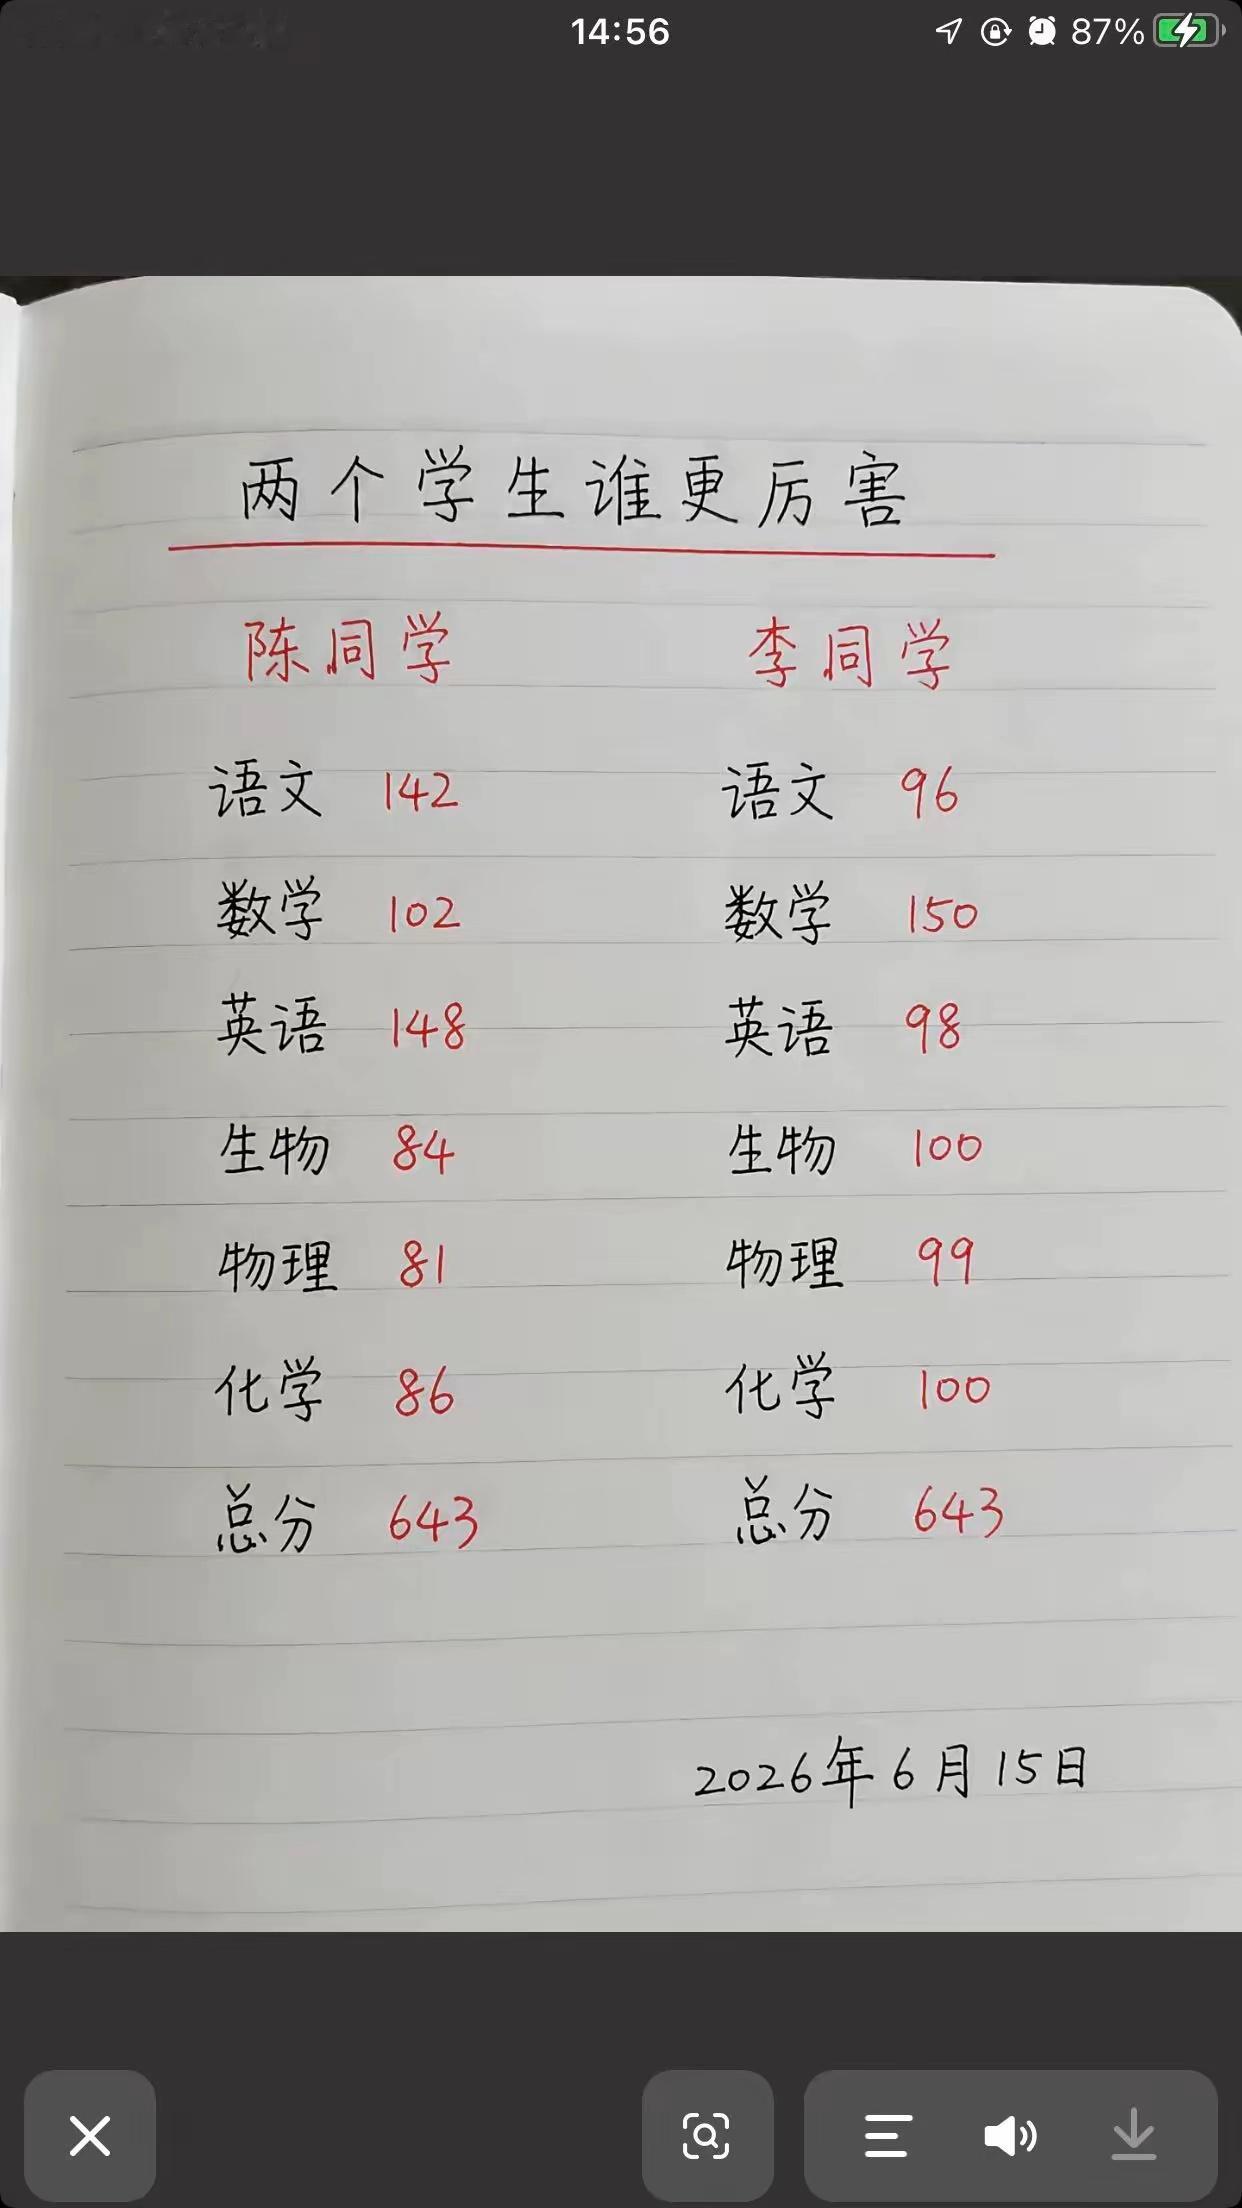 14:56
87%
两个学生谁更厉害
陈同学 李同学
语文 142 语文 96
数学 102 数学 150
英语 148 英语 98
生物 84 生物 100
物理 81 物理 99
化学 86 化学 100
总分 643 总分 643
2026年6月15日